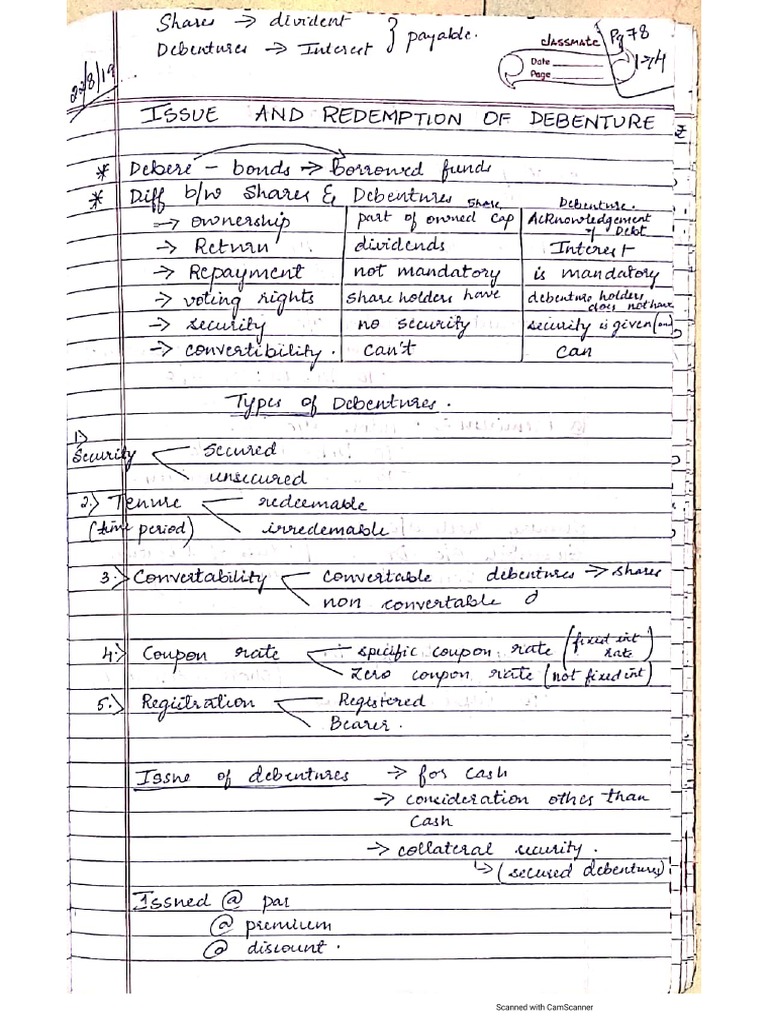 Shares → divident } payable.
Debentures → Interest
classmate
Date
Page
Pg 78
22/8/19
ISSUE AND REDEMPTION OF DEBENTURE
* Debere - bonds → borrowed funds
* Diff b/w Shares & Debentures Share Debenture.
→ ownership part of owned cap Acknowledgement of Debt
→ Return dividends Interest
→ Repayment not mandatory is mandatory
→ voting rights share holders have debenture holders does not have
→ security no security security is given
→ convertibility. can't can
Types of Debentures.
1) Security secured
unsecured
2.) Tenure redeemable
(time period) irredemable
3.) Convertability convertable debentures → shares
non convertable
4.) Coupon rate specific coupon rate (fixed int rate)
Zero coupon rate (not fixed int)
5.) Registration Registered
Bearer.
Issue of debentures → for cash
→ consideration other than
cash
→ collateral security.
↳ (secured debentures)
Issued @ par
@ premium
@ discount.
Scanned with CamScanner